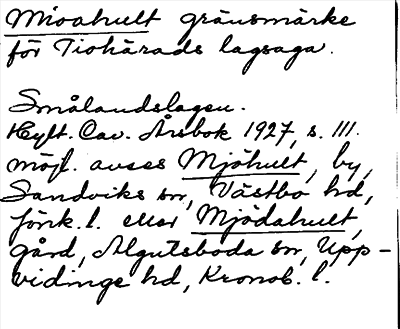 Mioahult gränsmärke
för Tiohärads lagsaga.
Smålandslagen.
Hylt. Cav. Årsbok 1927, s. 111.
möjl. avses Mjöhult, by,
Sandviks sn, Västbo hd,
Jönk. l. eller Mjödahult,
gård, Algutsboda sn, Upp-
vidinge hd, Kronob. l.